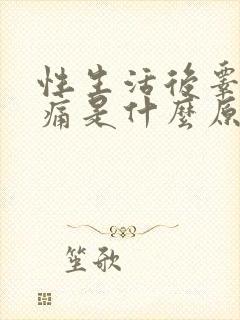 性生活後
痛是什麼原
笙歌